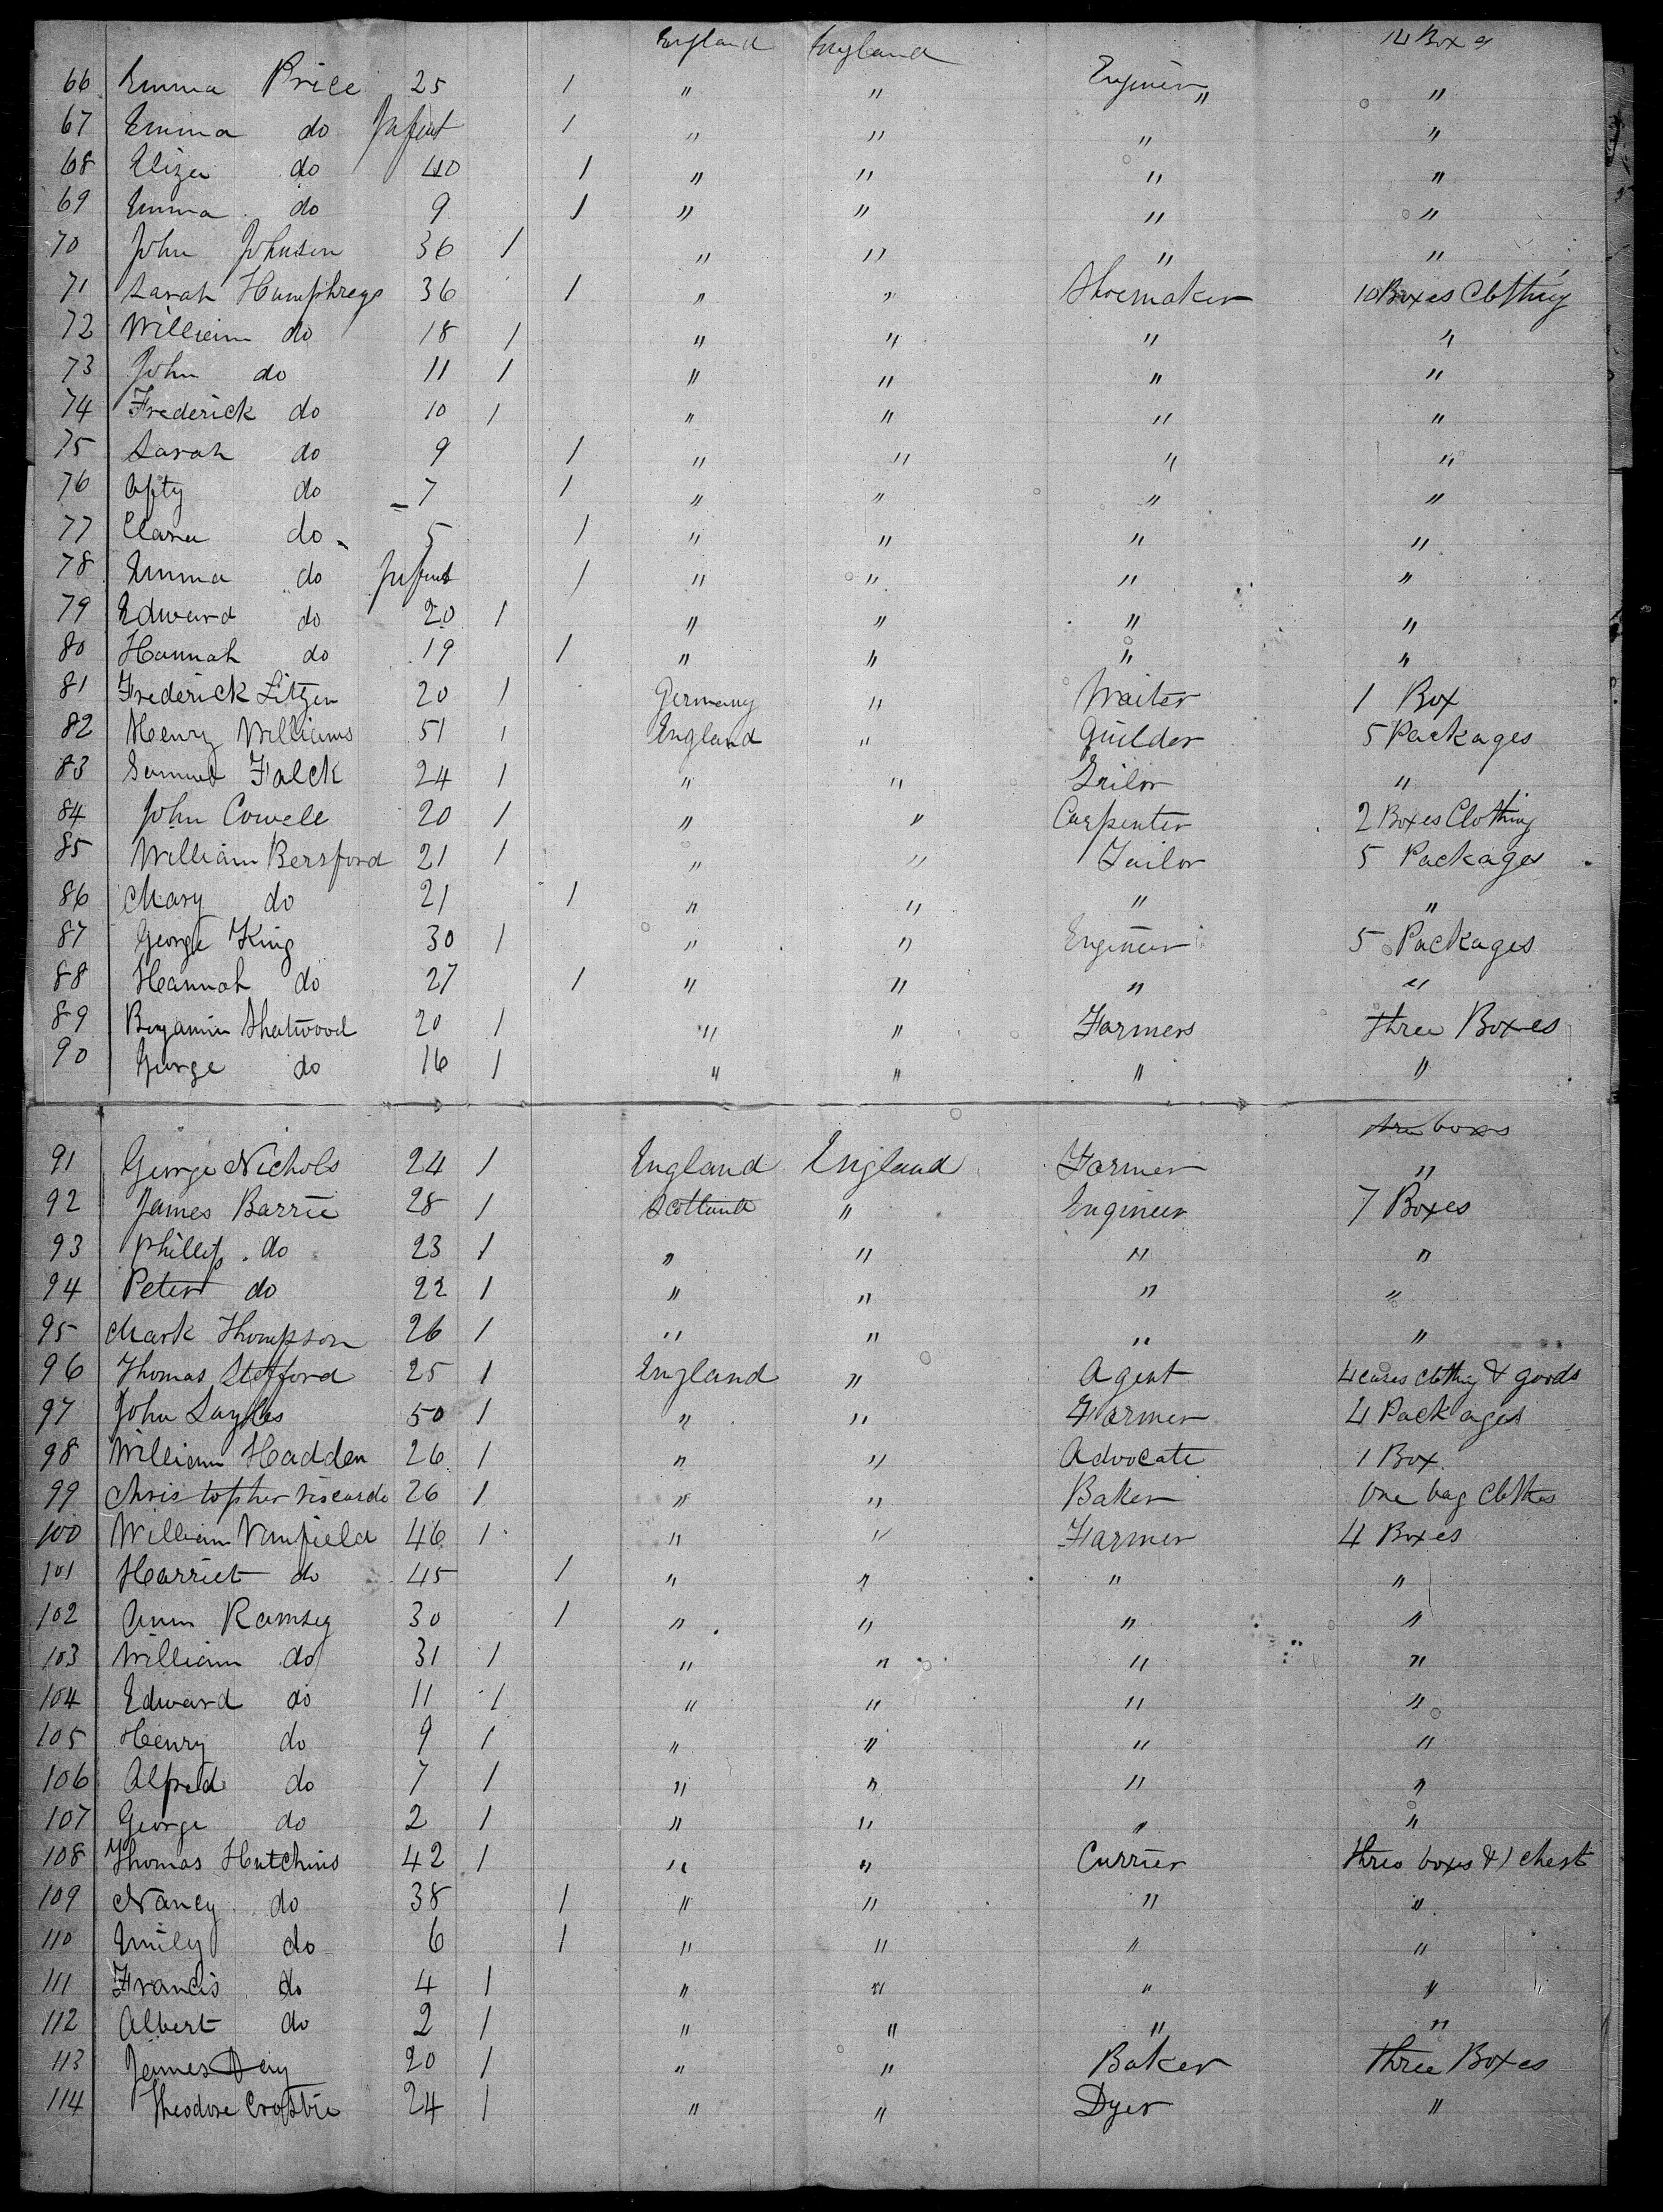 England England 14 Boxes
66 Emma Price 25 1 " " Enginer " "
67 Emma do Infant 1 " " " "
68 Eliza do 40 1 " " " "
69 Emma do 9 1 " " " "
70 John Johnson 36 1 " " " "
71 Sarah Humphreys 36 1 " " Shoemaker 10 Boxes Clothing
72 William do 18 1 " " " "
73 John do 11 1 " " " "
74 Frederick do 10 1 " " " "
75 Sarah do 9 1 " " " "
76 do 7 1 " " " "
77 Clara do 5 1 " " " "
78 Emma do Infant 1 " " " "
79 Edward do 20 1 " " " "
80 Hannah do 19 1 " " " "
81 Frederick Litzen 20 1 Germany " Waiter 1 Box
82 Henry Williams 51 1 England " Guilder 5 Packages
83 Samuel Falck 24 1 " " "
84 John Cowell 20 1 " " Carpenter 2 Boxes Clothing
85 William Bersford 21 1 " " Tailor 5 Packages
86 Mary do 21 1 " " " "
87 George King 30 1 " " Engineer 5 Packages
88 Hannah do 27 1 " " " "
89 Benjamin Shatwood 20 1 " " Farmers three Boxes
90 George do 16 1 " " " "
three boxes
91 George Nichols 24 1 England England Farmer "
92 James Barrie 28 1 Scotland " Engineer 7 Boxes
93 Phillip do 23 1 " " " "
94 Peter do 22 1 " " " "
95 Mark Thompson 26 1 " " " "
96 Thomas Stafford 25 1 England " Agent 4 cases clothing & goods
97 John Sayles 50 1 " " Farmer 4 Packages
98 William Hadden 26 1 " " Advocate 1 Box
99 Christopher 26 1 " " Baker One bag Clothes
100 William Vanfield 46 1 " " Farmer 4 Boxes
101 Harriet do 45 1 " " " "
102 Ann Ramsey 30 1 " " " "
103 William do 31 1 " " " "
104 Edward do 11 1 " " " "
105 Henry do 9 1 " " " "
106 Alfred do 7 1 " " " "
107 George do 2 1 " " " "
108 Thomas Hutchins 42 1 " " Currier three boxes & 1 chest
109 Nancy do 38 1 " " " "
110 Emily do 6 1 " " " "
111 Francis do 4 1 " " " "
112 Albert do 2 1 " " " "
113 James Day 20 1 " " Baker three Boxes
114 Theodore Crosbie 24 1 " " Dyer "